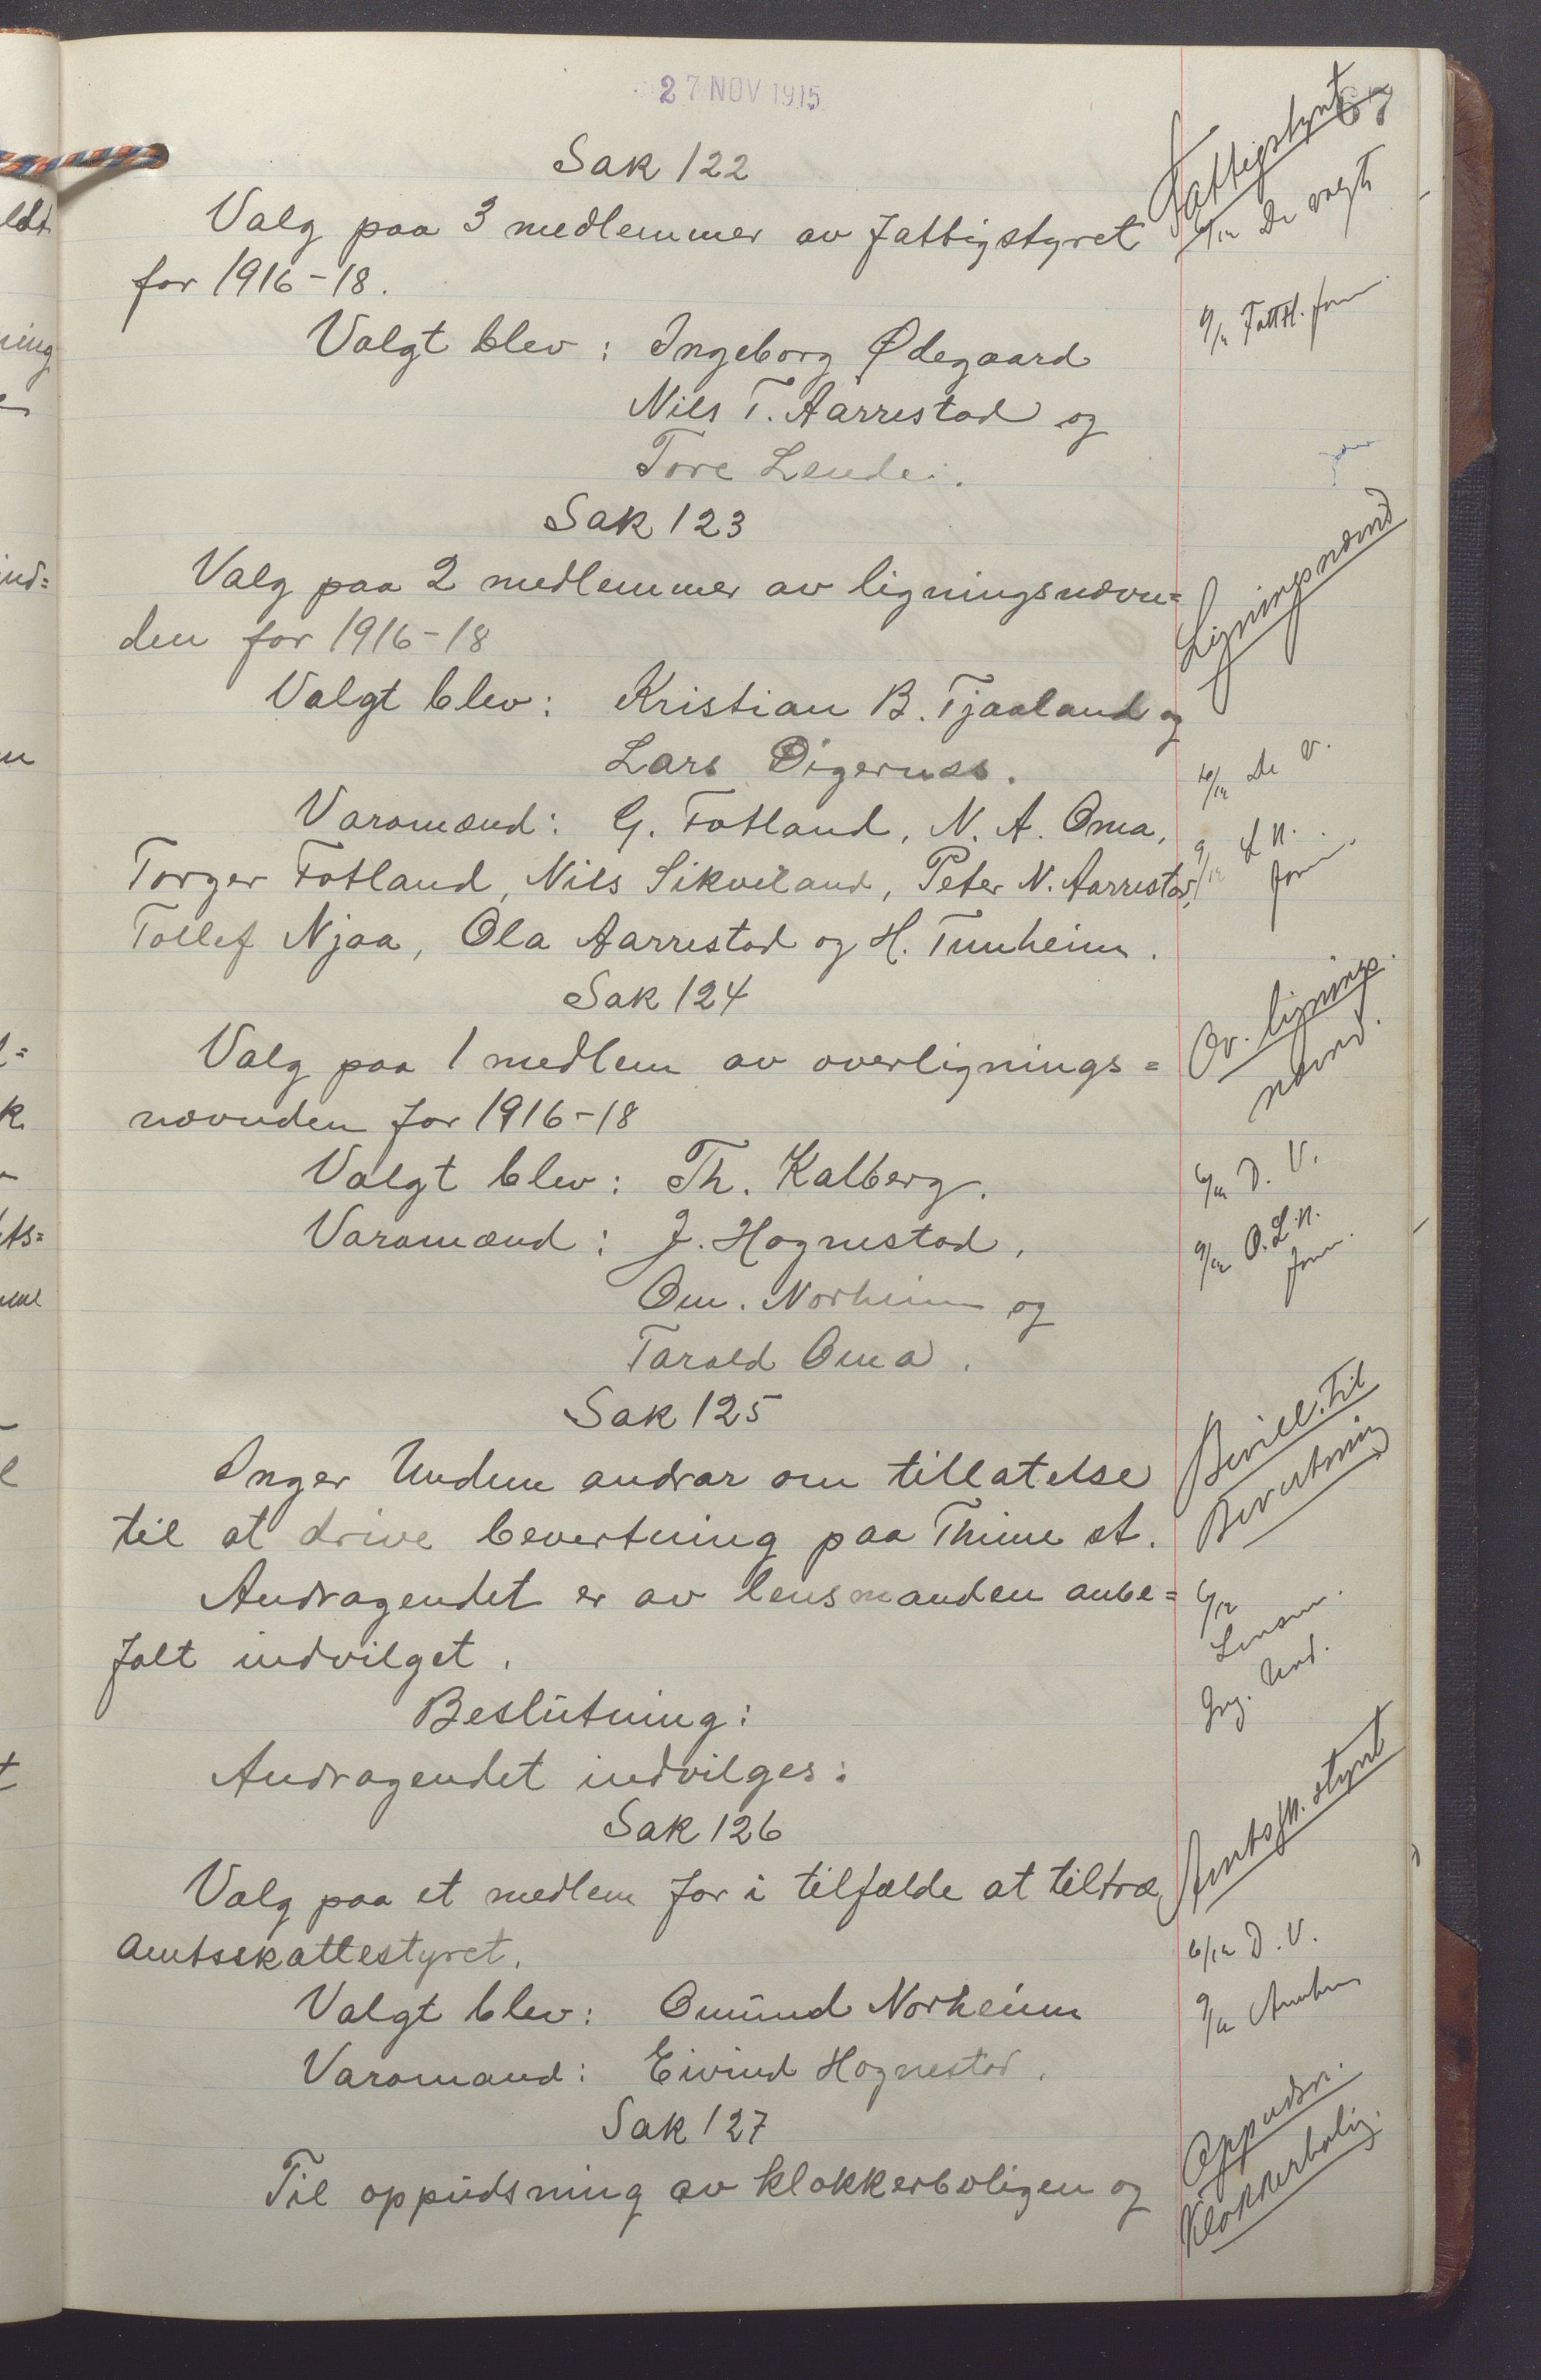 27 NOV 1915
67
Sak 122
Fattigstyret
Valg paa 3 medlemmer av fattigstyret
6/12 De valgte
for 1916-18.
Valgt blev: Ingeborg Ødegaard
9/12 Fattst. form.
Nils T. Aarrestad og
Tore Lende.
Sak 123
Ligningsnævnd
Valg paa 2 medlemmer av ligningsnævn=
den for 1916-18
Valgt blev: Kristian B. Tjaaland og
Lars Digernes.
6/12 de v.
Varamænd: G. Fotland, N. A. Oma,
9/12 L. N. form.
Torger Fotland, Nils Sikveland, Peter N. Aarrestad,
Tollef Njaa, Ola Aarrestad og H. Tunheim.
Sak 124
Ov. lignings
nævnd.
Valg paa 1 medlem av overlignings=
nævnden for 1916-18
Valgt blev: Th. Kalberg.
6/12 D. V.
Varamænd: J. Hognestad,
9/12 O.L.N. form.
Om. Norheim og
Tarald Oma.
Sak 125
Bevill. til
Bevertning
Inger Undem andrar om tillatelse
til at drive bevertning paa Thime st.
Andragendet er av lensmanden anbe=
6/12
Lensm.
falt indvilget.
Ing. Und.
Beslutning:
Andragendet indvilges:
Sak 126
Amtssk. styret
Valg paa et medlem for i tilfælde at tiltræ
amtsskattestyret.
6/12 D. V.
Valgt blev: Omund Norheim
9/12
Varamand: Eivind Hognestad.
Sak 127
Oppudsn.
Klokkerbolig.
Til oppudsning av klokkerboligen og